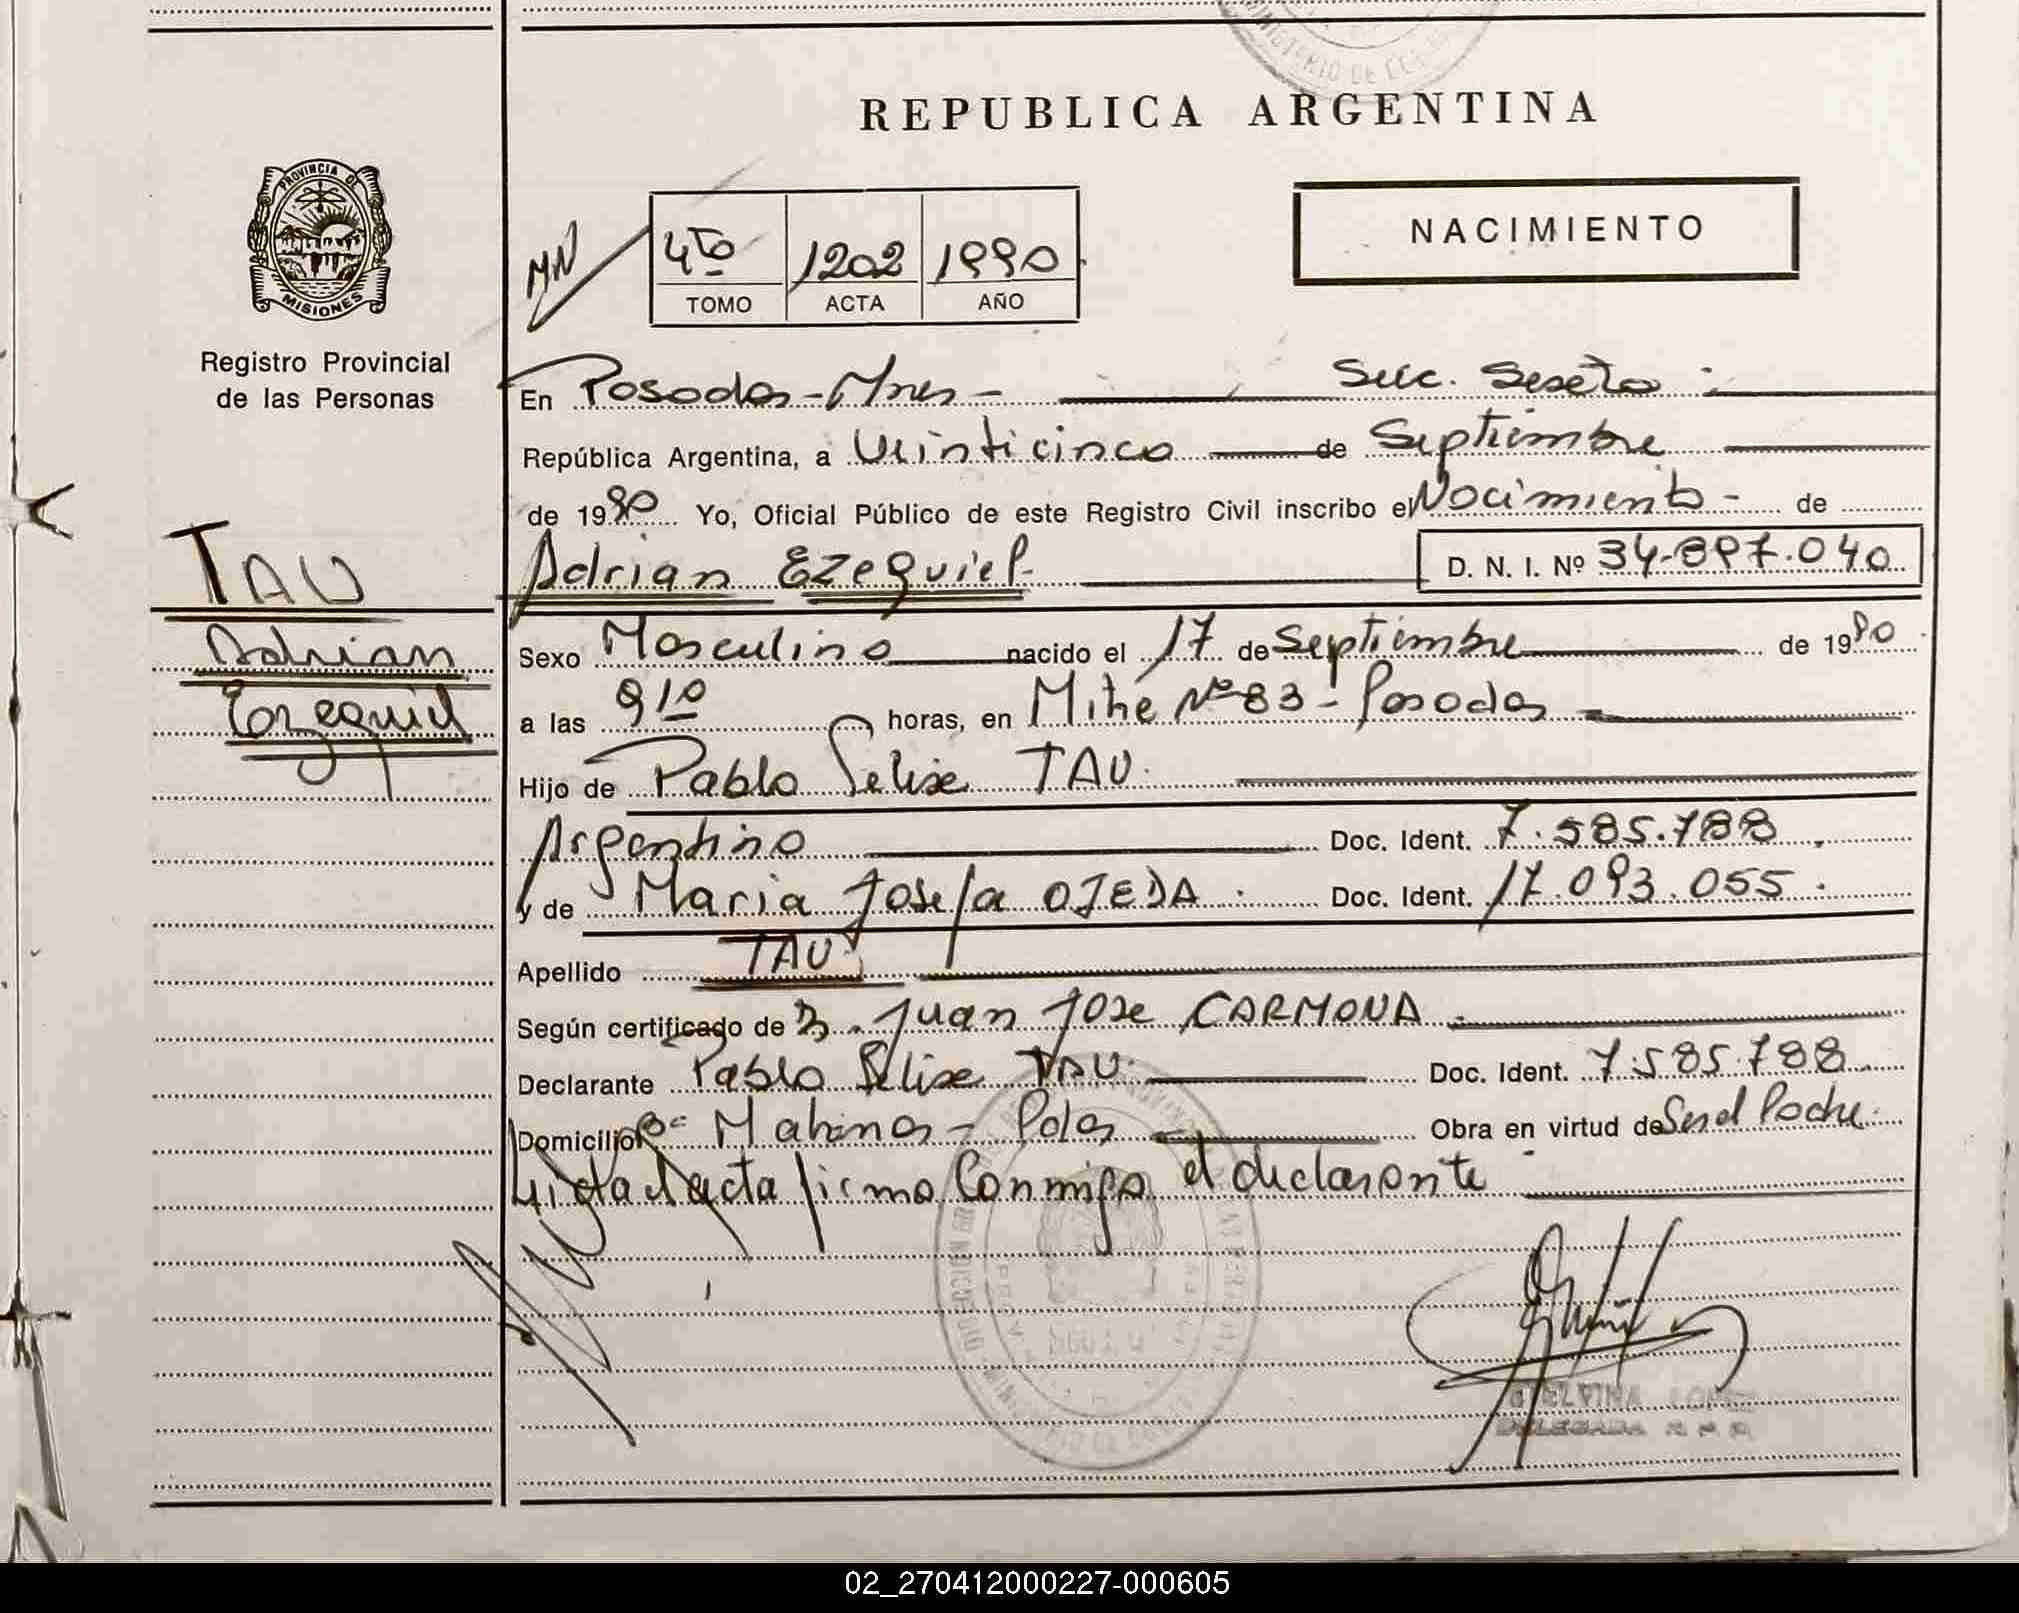 MINISTERIO DE
REPUBLICA ARGENTINA
PROVINCIA DE
MISIONES
Registro Provincial
de las Personas
NACIMIENTO
4to 1202 1990
TOMO ACTA AÑO
En Posadas-Mnes- Secc. Sexta
República Argentina, a Veinticinco de Septiembre
de 1990 Yo, Oficial Público de este Registro Civil inscribo el Nacimiento - de
TAU
Adrian
Ezequiel
Adrian Ezequiel
D. N. I. Nº 34.897.040
Sexo Masculino nacido el 17 de Septiembre de 1990
a las 9 10 horas, en Mitre Nº 83 - Posadas
Hijo de Pablo Felix TAU.
Argentino Doc. Ident. 7.585.788
y de Maria Josefa OJEDA. Doc. Ident. 17.093.055.
Apellido TAU
Según certificado de Juan Jose CARMONA
Declarante Pablo Felix TAU. Doc. Ident. 7.585.788
Domicilio Bº Malvinas - Pdas Obra en virtud de Ser el Padre.
Leida el acta firma Conmigo el declarante
ETELVINA
DELEGADA R P P
02_270412000227-000605